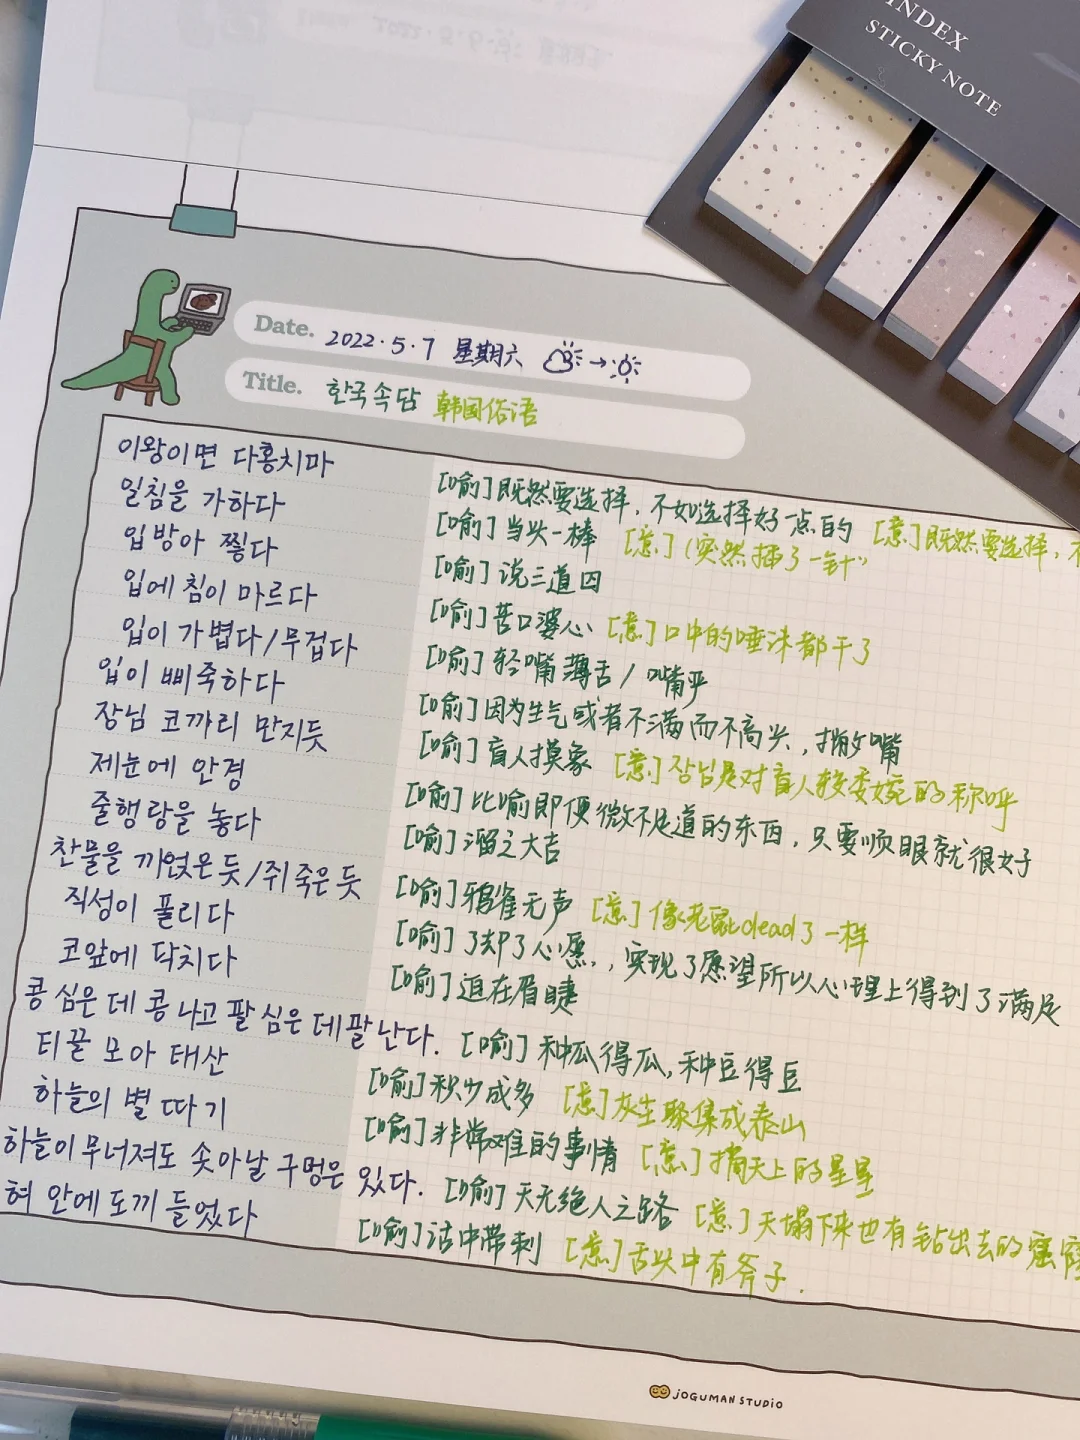 INDEX
STICKY NOTE
Date. 2022.5.7 星期六
Title. 한국속담 韩国俗语
이왕이면 다홍치마 [喻]既然要选择，不如选择好一点的 [意]既然要选择，不
일침을 가하다 [喻]当头一棒 [意](突然插了一针"
입방아 찧다 [喻]说三道四
입에 침이 마르다 [喻]苦口婆心 [意]口中的唾沫都干了
입이 가볍다/무겁다 [喻]轻嘴薄舌/嘴严
입이 삐죽하다 [喻]因为生气或者不满而不高兴，撇嘴
장님 코끼리 만지듯 [喻]盲人摸象 [意]장님是对盲人较委婉的称呼
제눈에 안경 [喻]比喻即便微不足道的东西，只要顺眼就很好
줄행랑을 놓다 [喻]溜之大吉
찬물을 끼얹은 듯/쥐 죽은 듯 [喻]鸦雀无声 [意]像老鼠dead了一样
직성이 풀리다 [喻]了却了心愿，实现了愿望所以心理上得到了满足
코앞에 닥치다 [喻]迫在眉睫
콩 심은 데 콩 나고 팥 심은 데 팥 난다. [喻]种瓜得瓜,种豆得豆
티끌 모아 태산 [喻]积少成多 [意]灰尘聚集成泰山
하늘의 별 따기 [喻]非常难的事情 [意]摘天上的星星
하늘이 무너져도 솟아날 구멍은 있다. [喻]天无绝人之路 [意]天塌下来也有钻出去的窟窿
혀 안에 도끼 들었다 [喻]话中带刺 [意]舌头中有斧子.
JOGUMAN STUDIO